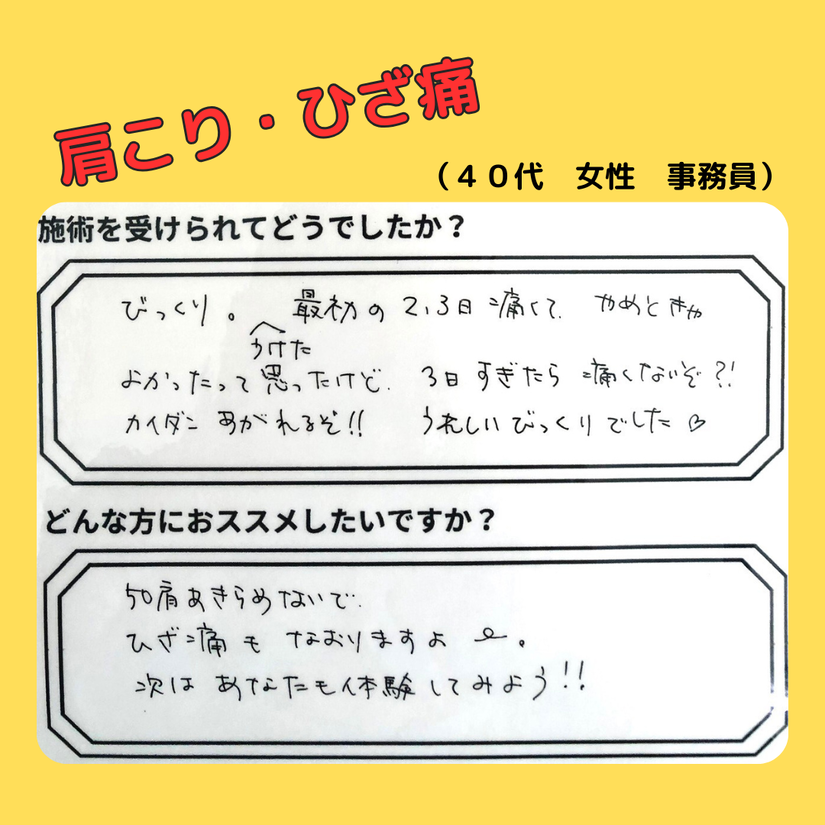 肩こり・ひざ痛
（４０代　女性　事務員）
施術を受けられてどうでしたか？
びっくり。 最初の2,3日痛くて、やめときゃ
うけた
よかったって思ったけど、3日すぎたら痛くないぞ?!
カイダンあがれるぞ!! うれしいびっくりでした♡
どんな方におススメしたいですか？
50肩あきらめないで、
ひざ痛もなおりますよ 。
次はあなたも体験してみよう!!